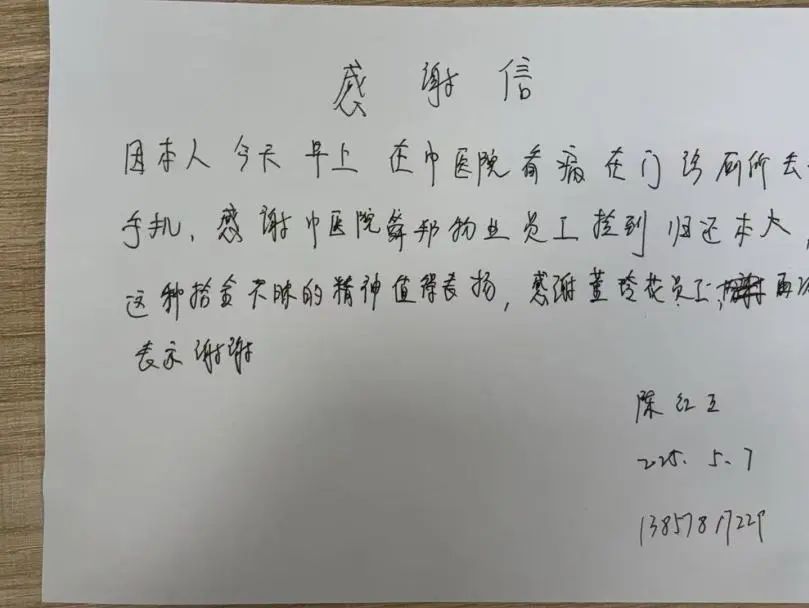 感谢信
因本人今天早上在中医院看病在门诊厕所丢
手机，感谢中医院舜邦物业员工捡到归还本人
这种拾金不昧的精神值得表扬，感谢董玲花员工，再次
表示谢谢
陈红
2025.5.7